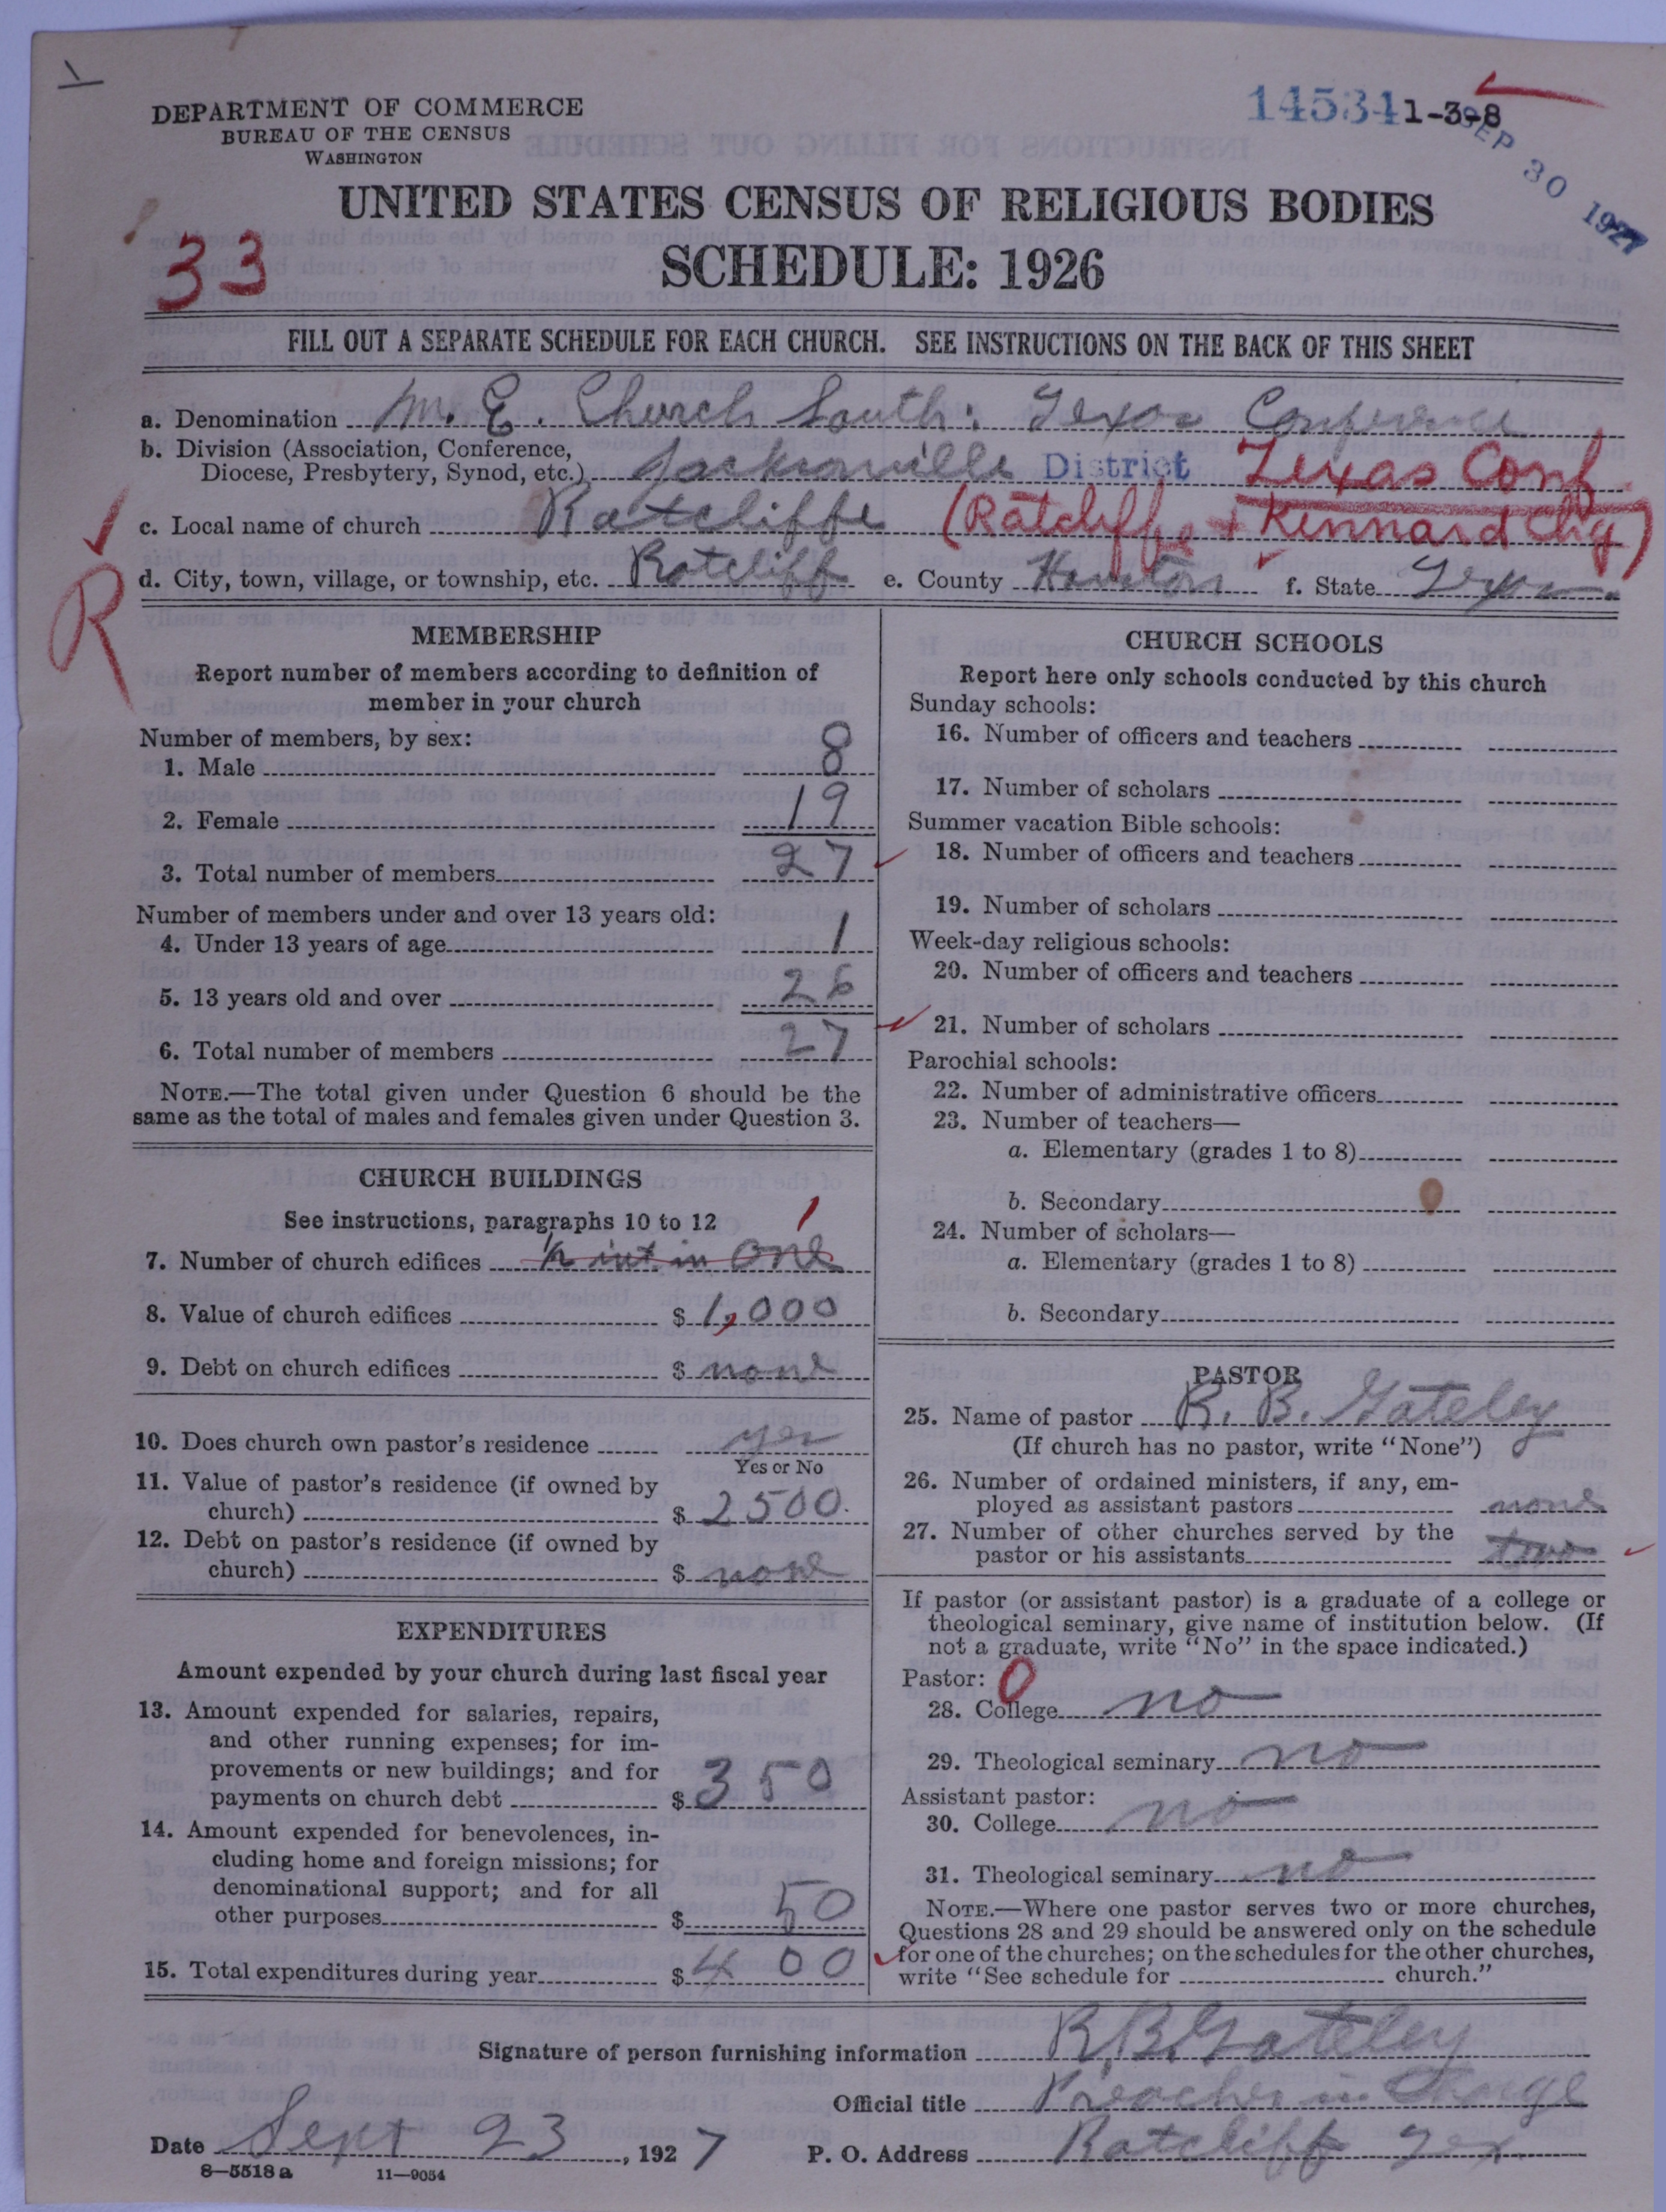 DEPARTMENT OF COMMERCE
BUREAU OF THE CENSUS
WASHINGTON
14534 1-3-8
SEP 30 1927
UNITED STATES CENSUS OF RELIGIOUS BODIES
33
SCHEDULE: 1926
FILL OUT A SEPARATE SCHEDULE FOR EACH CHURCH. SEE INSTRUCTIONS ON THE BACK OF THIS SHEET
a. Denomination M. E. Church South: Texas Conference
b. Division (Association, Conference,
Diocese, Presbytery, Synod, etc.) Jacksonville District Texas Conf
c. Local name of church Ratcliffe (Ratcliffe + Kennard Chg)
d. City, town, village, or township, etc. Ratcliff e. County Houston f. State Texas
R
MEMBERSHIP
Report number of members according to definition of
member in your church
Number of members, by sex:
1. Male 8
2. Female 19
3. Total number of members 27
Number of members under and over 13 years old:
4. Under 13 years of age 1
5. 13 years old and over 26
6. Total number of members 27
NOTE.—The total given under Question 6 should be the
same as the total of males and females given under Question 3.
CHURCH BUILDINGS
See instructions, paragraphs 10 to 12
1
7. Number of church edifices ½ int. in one
8. Value of church edifices $ 1,000
9. Debt on church edifices $ none
10. Does church own pastor's residence yes
Yes or No
11. Value of pastor's residence (if owned by
church) $ 2500.
12. Debt on pastor's residence (if owned by
church) $ none
EXPENDITURES
Amount expended by your church during last fiscal year
13. Amount expended for salaries, repairs,
and other running expenses; for im-
provements or new buildings; and for
payments on church debt $ 350
14. Amount expended for benevolences, in-
cluding home and foreign missions; for
denominational support; and for all
other purposes $ 50
15. Total expenditures during year $ 400
CHURCH SCHOOLS
Report here only schools conducted by this church
Sunday schools:
16. Number of officers and teachers
17. Number of scholars
Summer vacation Bible schools:
18. Number of officers and teachers
19. Number of scholars
Week-day religious schools:
20. Number of officers and teachers
21. Number of scholars
Parochial schools:
22. Number of administrative officers
23. Number of teachers—
a. Elementary (grades 1 to 8)
b. Secondary
24. Number of scholars—
a. Elementary (grades 1 to 8)
b. Secondary
PASTOR
25. Name of pastor R. B. Gateley
(If church has no pastor, write "None")
26. Number of ordained ministers, if any, em-
ployed as assistant pastors none
27. Number of other churches served by the
pastor or his assistants two
If pastor (or assistant pastor) is a graduate of a college or
theological seminary, give name of institution below. (If
not a graduate, write "No" in the space indicated.)
Pastor: 0
28. College no
29. Theological seminary no
Assistant pastor:
30. College no
31. Theological seminary no
NOTE.—Where one pastor serves two or more churches,
Questions 28 and 29 should be answered only on the schedule
for one of the churches; on the schedules for the other churches,
write "See schedule for church."
Signature of person furnishing information R. B. Gateley
Official title Preacher in Charge
Date Sept 23, 1927 P. O. Address Ratcliff Tex.
8—5518 a 11—9054